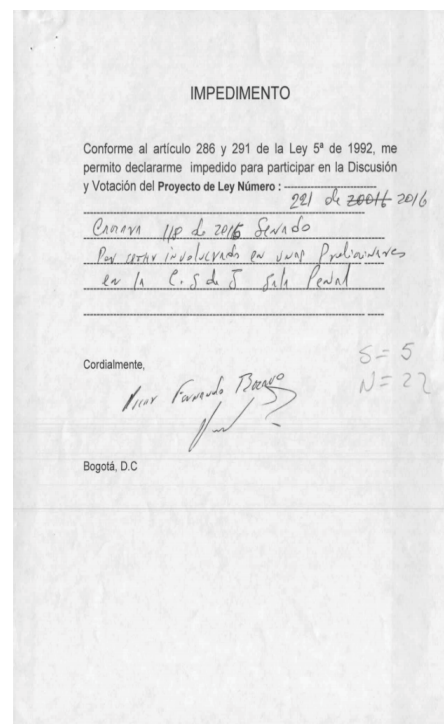 IMPEDIMENTO
Conforme al artículo 286 y 291 de la Ley 5ª de 1992, me
permito declararme impedido para participar en la Discusión
y Votación del Proyecto de Ley Número :
221 de 20016 2016
Camara 110 de 2016 Senado
Por estar involucrado en unas Preliminares
en la C. S de J Sala Penal
Cordialmente,
S= 5
N= 22
Fernando Bravo
Bogotá, D.C